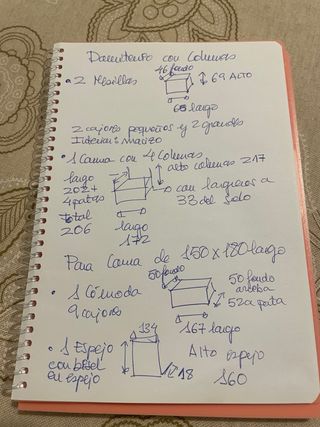 Dormitorio con Columnas
46 fondo
• 2 Mesillas
69 Alto
65 largo
2 cajones pequeños y 2 grandes
Interior: Macizo
• 1 Cama con 4 Columnas
alto columnas 217
largo
202 +
4 patas
total
206
con largueros a
33 del suelo
largo
172
Para Cama de 150 x 180 largo
50 fondo
50 fondo
arriba
52 a pata
• 1 Cómoda
9 cajones
167 largo
134
• 1 Espejo
con bisel
en espejo
18
Alto espejo
160